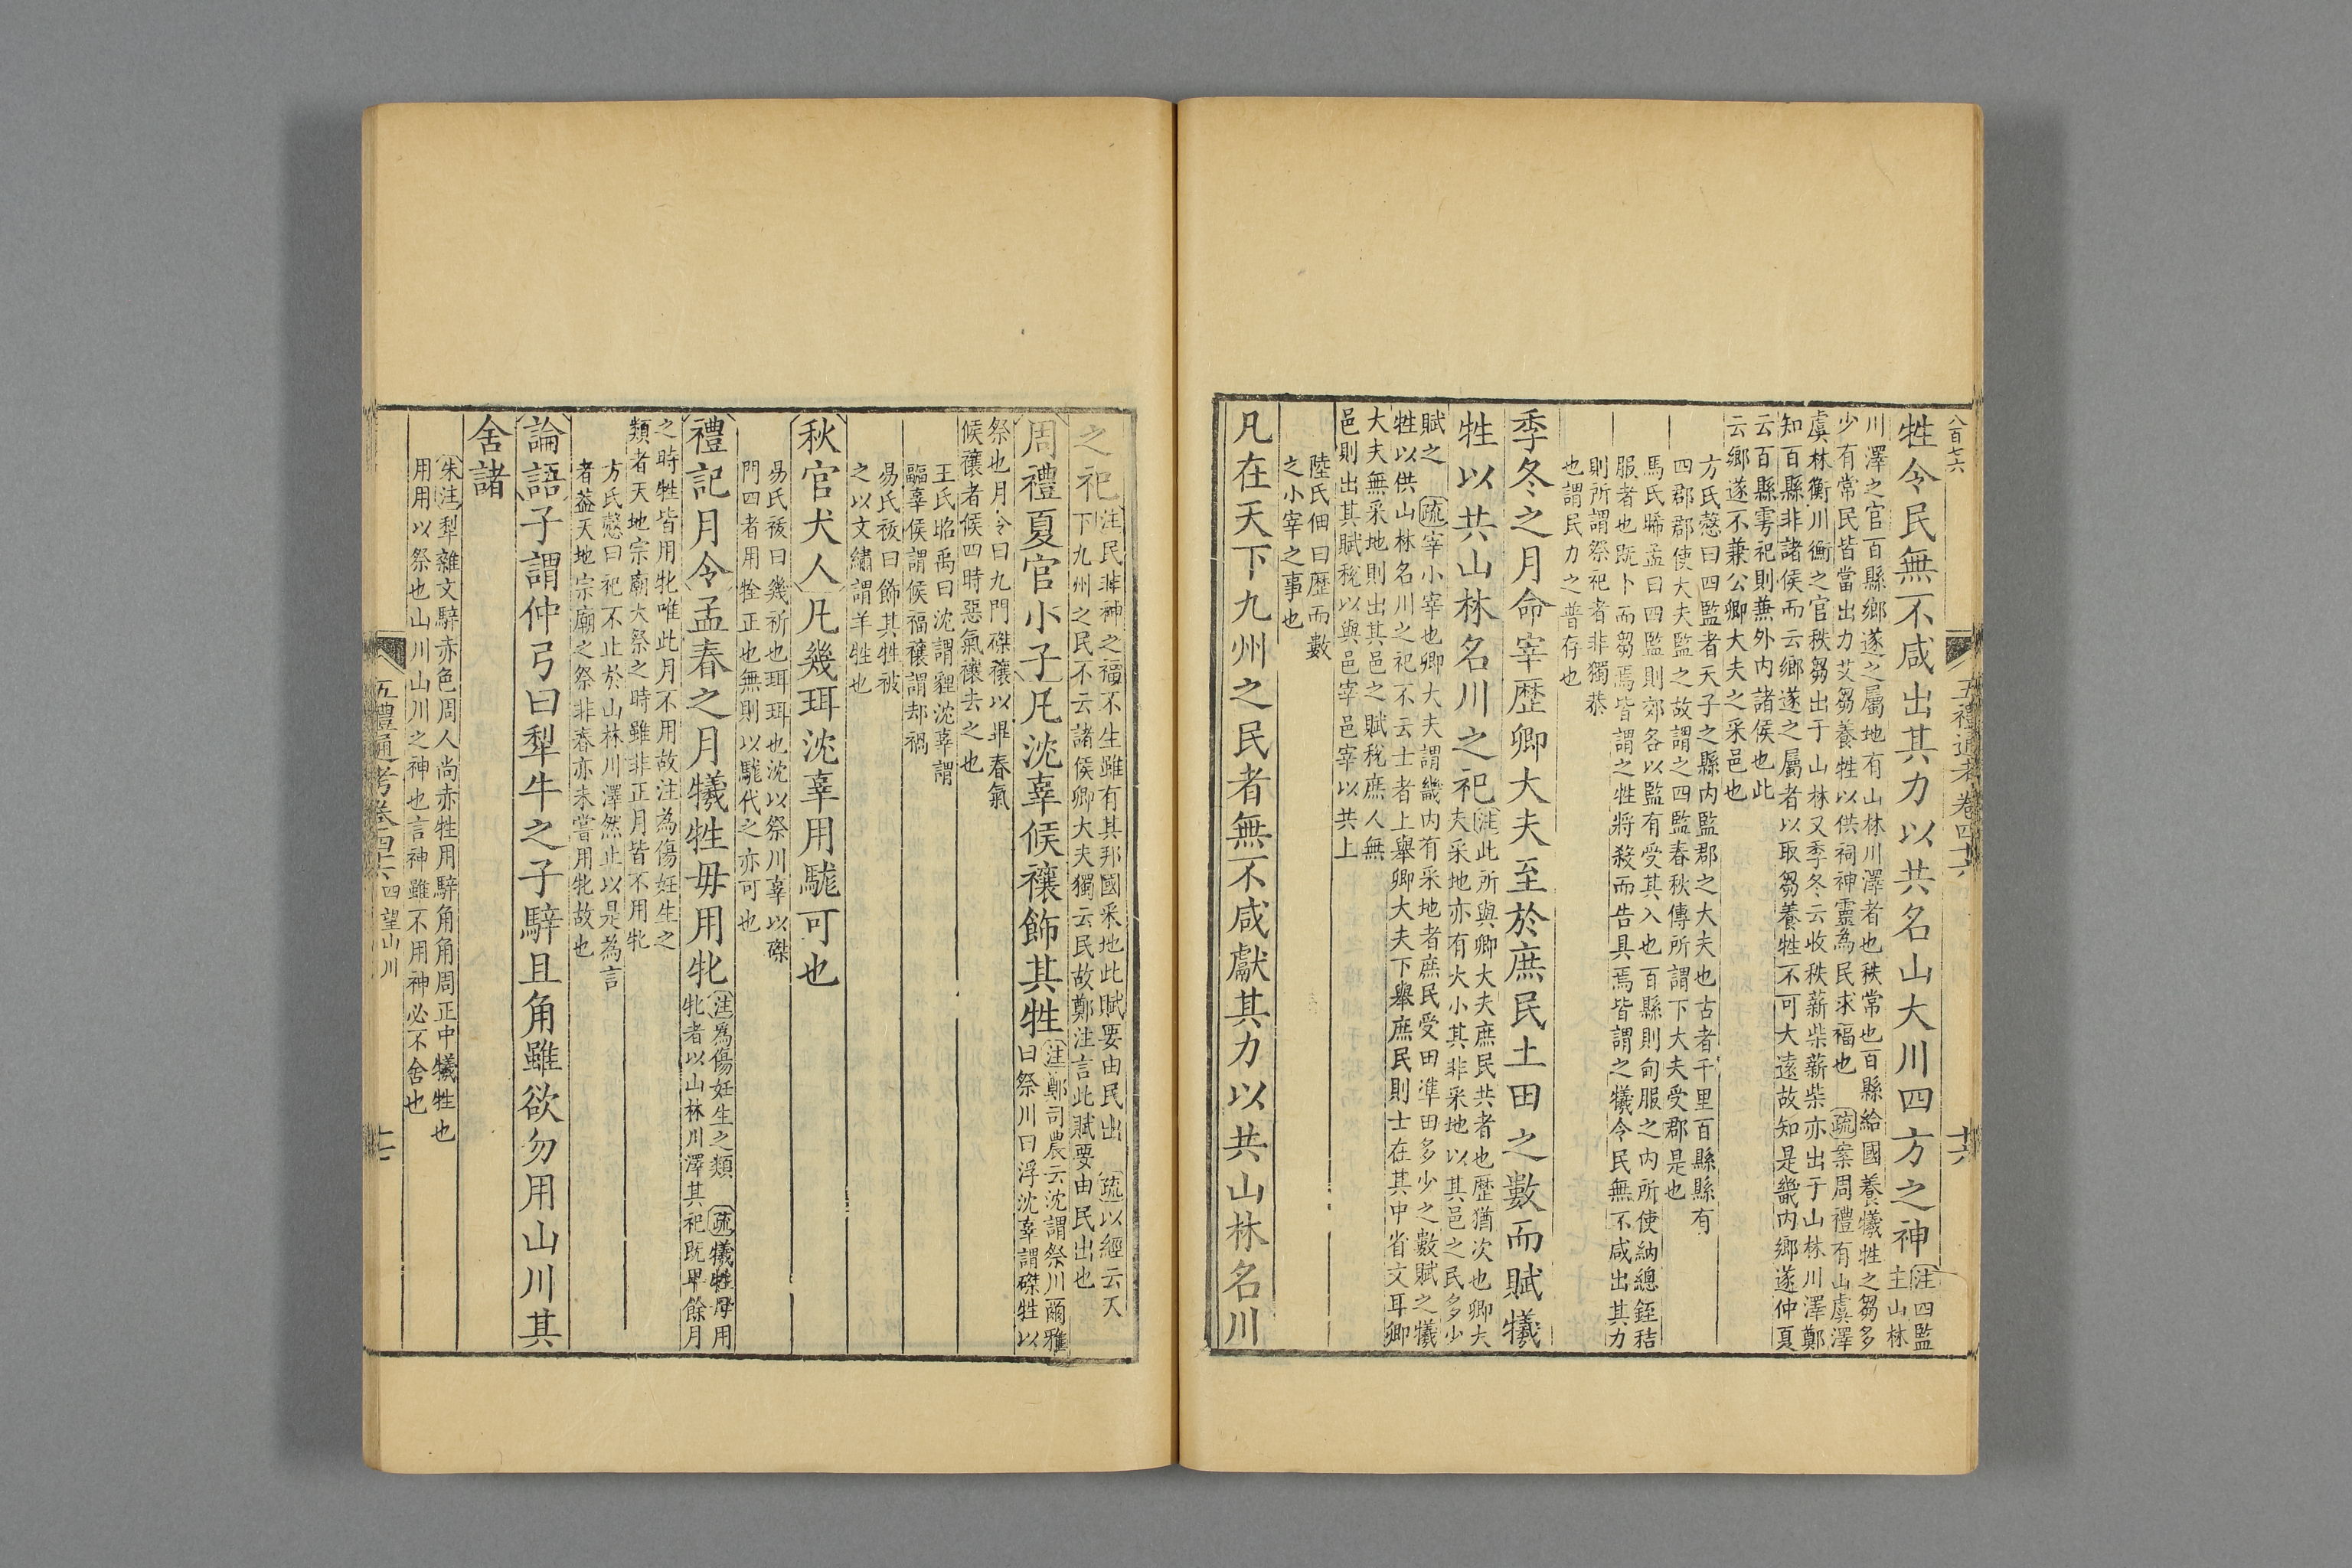 八百七六
五禮通考卷四十六
十六
牲令民無不咸出其力以共名山大川四方之神注四監
主山林
川澤之官百縣鄉遂之屬地有山林川澤者也秩常也百縣給國養犧牲之芻多
少有常民皆當出力艾芻養牲以供祠神靈為民求福也 疏案周禮有山虞澤
虞林衡川衡之官秩芻出于山林又季冬云收秩薪柴薪柴亦出于山林川澤鄭
知百縣非諸侯而云鄉遂之屬者以取芻養牲不可大遠故知是畿內鄉遂仲夏
云百縣雩祀則兼外內諸侯也此
云鄉遂不兼公卿大夫之采邑也
方氏愨曰四監者天子之縣內監郡之大夫也古者千里百縣縣有
四郡郡使大夫監之故謂之四監春秋傳所謂下大夫受郡是也
馬氏晞孟曰四監則郊各以監有受其入也百縣則甸服之內所使納總銍秸
服者也既卜而芻焉皆謂之牲將殺而告具焉皆謂之犧令民無不咸出其力
則所謂祭祀者非獨恭
也謂民力之普存也
季冬之月命宰歷卿大夫至於庶民土田之數而賦犧
牲以共山林名川之祀注此所與卿大夫庶民共者也歷猶次也卿大
夫采地亦有大小其非采地以其邑之民多少
賦之 疏宰小宰也卿大夫謂畿內有采地者庶民受田準田多少之數賦之犧
牲以供山林名川之祀不云士者上舉卿大夫下舉庶民則士在其中省文耳卿
大夫無采地則出其邑之賦稅庶人無
邑則出其賦稅以與邑宰邑宰以共上
陸氏佃曰歷而數
之小宰之事也
凡在天下九州之民者無不咸獻其力以共山林名川
之祀注民非神之福不生雖有其邦國采地此賦要由民出 疏以經云天
下九州之民不云諸侯卿大夫獨云民故鄭注言此賦要由民出也
周禮夏官小子凡沈辜候禳飾其牲注鄭司農云沈謂祭川爾雅
曰祭川曰浮沈辜謂磔牲以
祭也月令曰九門磔禳以畢春氣
候禳者候四時惡氣禳去之也
王氏昭禹曰沈謂貍沈辜謂
疈辜候謂候福禳謂却禍
易氏祓曰飾其牲被
之以文繡謂羊牲也
秋官犬人凡幾珥沈辜用駹可也
易氏祓曰幾祈也珥珥也沈以祭川辜以磔
門四者用牷正也無則以駹代之亦可也
禮記月令孟春之月犧牲毋用牝注為傷妊生之類 疏犧牲毋用
牝者以山林川澤其祀既畢餘月
之時牲皆用牝唯此月不用故注為傷妊生之
類者天地宗廟大祭之時雖非正月皆不用牝
方氏愨曰祀不止於山林川澤然止以是為言
者葢天地宗廟之祭非春亦未嘗用牝故也
論語子謂仲弓曰犁牛之子騂且角雖欲勿用山川其
舍諸
朱注犁雜文騂赤色周人尚赤牲用騂角角周正中犧牲也
用用以祭也山川山川之神也言神雖不用神必不舍也
五禮通考卷四十六 四望山川
十七